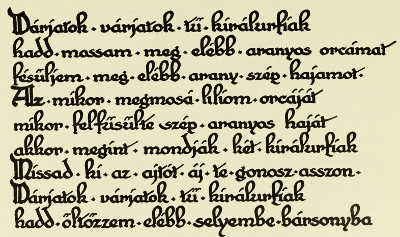 Várjatok · várjatok · tűi · királyurfiak
hadd · mossam · meg · elébb · aranyos orcámat
fésüljem · meg · elébb · arany · szép · hajamot ·
Alz · mikor · megmosá · liliom · orcáját
mikor · felfűsülte szép · aranyos haját
akkor · megint · mondják · két · királyurfiak
Nissad · ki · az · ajtót · áj · te · gonosz · asszon ·
Várjatok · várjatok · tűi · királyurfiak
hadd · öltözzem · elébb · selyembe · bársonyba